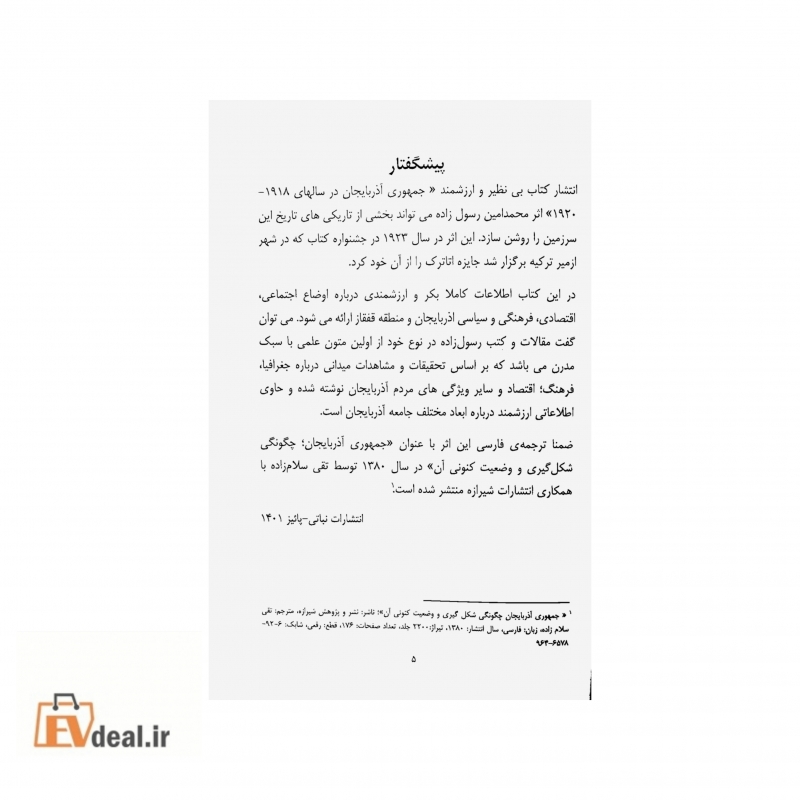 پیشگفتار
انتشار کتاب بی نظیر و ارزشمند « جمهوری آذربایجان در سالهای ۱۹۱۸-
۱۹۲۰» اثر محمدامین رسول زاده می تواند بخشی از تاریکی های تاریخ این
سرزمین را روشن سازد. این اثر در سال ۱۹۲۳ در جشنواره کتاب که در شهر
ازمیر ترکیه برگزار شد جایزه اتاترک را از آن خود کرد.
در این کتاب اطلاعات کاملا بکر و ارزشمندی درباره اوضاع اجتماعی،
اقتصادی، فرهنگی و سیاسی اذربایجان و منطقه قفقاز ارائه می شود. می توان
گفت مقالات و کتب رسول‌زاده در نوع خود از اولین متون علمی با سبک
مدرن می باشد که بر اساس تحقیقات و مشاهدات میدانی درباره جغرافیا،
فرهنگ؛ اقتصاد و سایر ویژگی های مردم آذربایجان نوشته شده و حاوی
اطلاعاتی ارزشمند درباره ابعاد مختلف جامعه آذربایجان است.
ضمنا ترجمه‌ی فارسی این اثر با عنوان «جمهوری آذربایجان؛ چگونگی
شکل‌گیری و وضعیت کنونی آن» در سال ۱۳۸۰ توسط تقی سلام‌زاده با
همکاری انتشارات شیرازه منتشر شده است.۱
انتشارات نباتی-پائیز ۱۴۰۱
۱ « جمهوری آذربایجان چگونگی شکل گیری و وضعیت کنونی آن»؛ ناشر: نشر و پژوهش شیرازه، مترجم: تقی
سلام زاده، زبان: فارسی، سال انتشار: ۱۳۸۰، تیراژ:۲۲۰۰ جلد، تعداد صفحات: ۱۷۶، قطع: رقعی، شابک: ۶-۹۲-
۹۶۴-۶۵۷۸
۵
EVdeal.ir